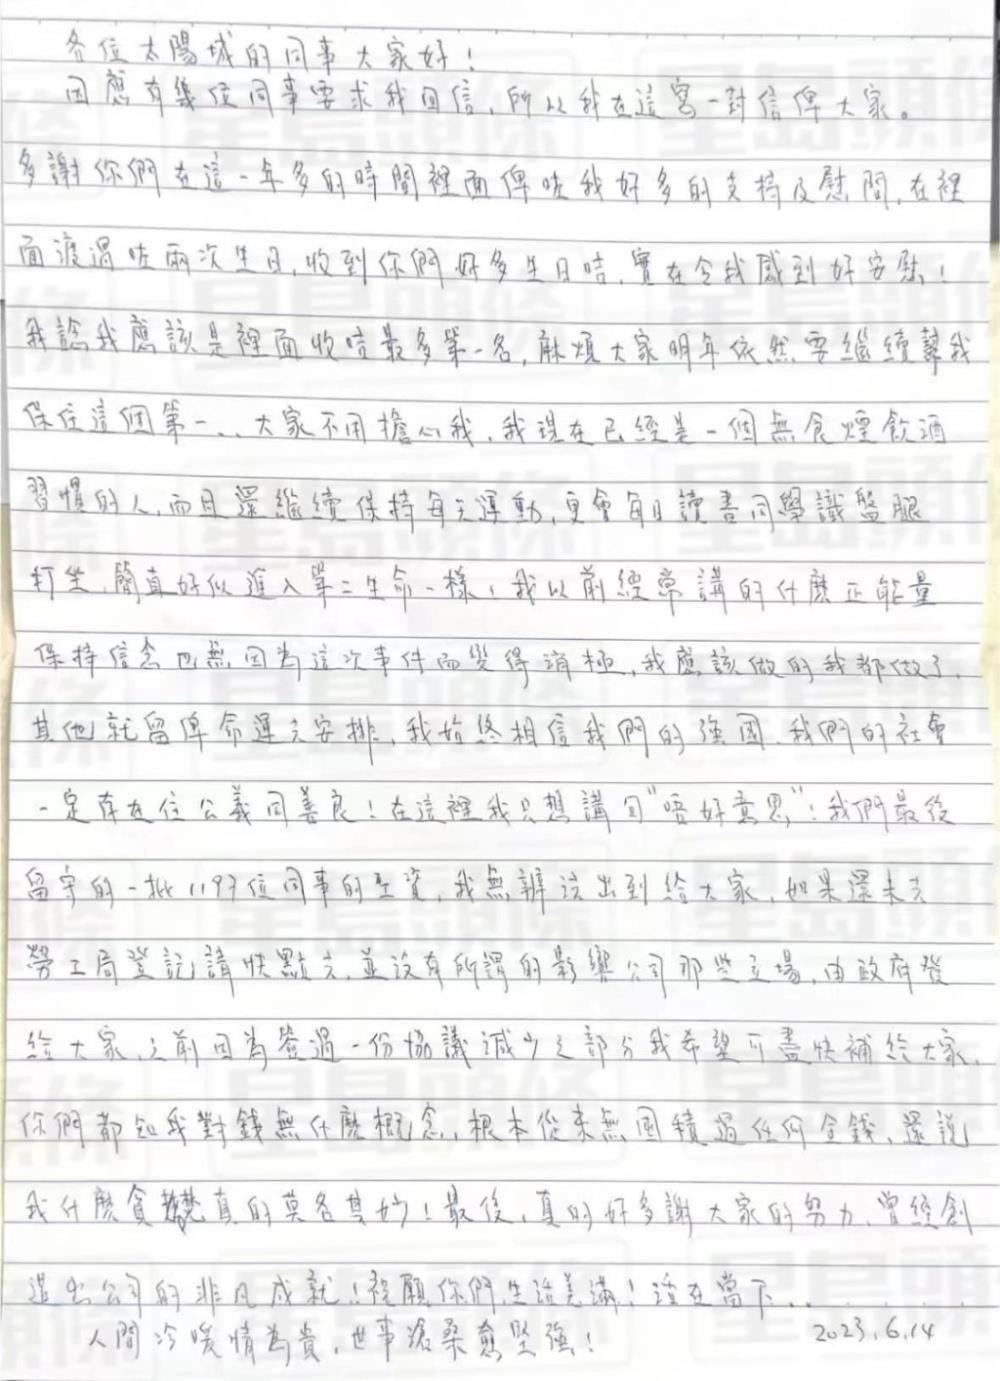 各位太陽城的同事大家好！
因應有幾位同事要求我回信，所以我在這寫一封信俾大家。
多謝你們在這一年多的時間裡面俾咗我好多的支持及慰問，在裡
面渡過咗兩次生日，收到你們好多生日咭，實在令我感到好安慰！
我諗我應該是裡面收咭最多第一名，麻煩大家明年依然要繼續幫我
保住這個第一．．大家不用擔心我，我現在已經是一個無食煙飲酒
習慣的人，而且還繼續保持每天運動，更會每日讀書同學識盤腿
打坐，簡直好似進入第二生命一樣，我以前經常講的什麼正能量
保持信念也無因為這次事件而變得消極，我應該做的我都做了，
其他就留俾命運去安排，我始終相信我們的強國，我們的社會
一定存在住公義同善良！在這裡我只想講句"唔好意思"！我們最後
留守的一批1197位同事的工資，我無辦法出到給大家，如果還未去
勞工局登記請快點去，並沒有所謂的影響公司那些立場，由政府發
給大家，之前因為簽過一份協議減少之部分我希望可盡快補給大家，
你們都知我對錢無什麼概念，根本從來無囤積過任何金錢，還說
我什麼貪婪真的莫名其妙！最後，真的好多謝大家的努力，曾經創
造出公司的非凡成就！祝願你們，生活美滿！活在當下．．
人間冷暖情為貴，世事滄桑愈堅強！
2023.6.14
星島頭條